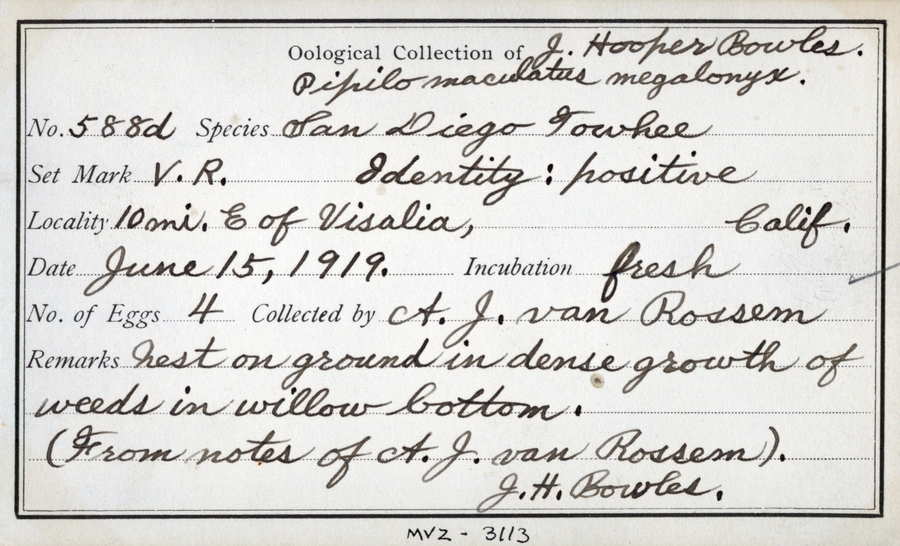 Oological Collection of J. Hooper Bowles.
Pipilo maculatus megalonyx.
No. 588d Species San Diego Towhee
Set Mark V. R. Identity: positive
Locality 10 mi. E of Visalia, Calif.
Date June 15, 1919. Incubation fresh
No. of Eggs 4 Collected by A. J. van Rossem
Remarks Nest on ground in dense growth of
weeds in willow bottom.
(From notes of A. J. van Rossem).
J. H. Bowles.
MVZ - 3113